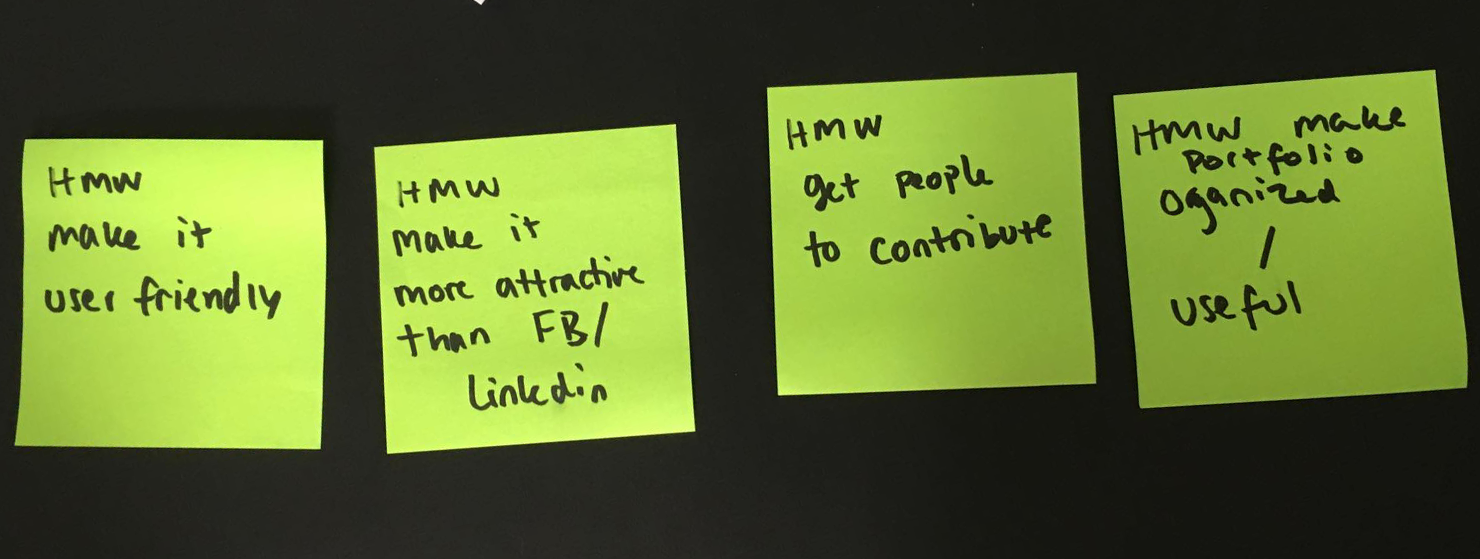 HMW
make it
user friendly
HMW
make it
more attractive
than FB/
linkedin
HMW
get people
to contribute
HMW make
portfolio
oganized
/
useful